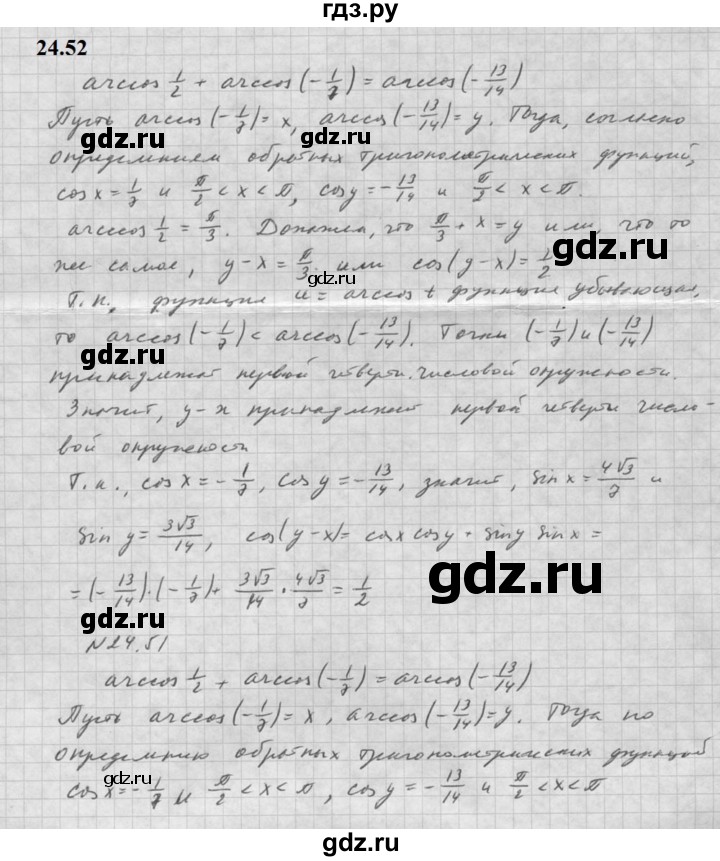 гдз.ру
24.52
arccos 1/2 + arccos(-1/7) = arccos(-13/14)
Пусть arccos(-1/7) = x, arccos(-13/14) = y. Тогда, согласно
gdz.ru gdz.ru
определением обратных тригонометрических функций,
cos x = 1/7 и π/2 < x < π, cos y = -13/14 и π/2 < x < π.
arccos 1/2 = π/3. Докажем, что π/3 + x = y или, что то
же самое, y - x = π/3 или cos(y - x) = 1/2
gdz.ru
Т.к. функция u = arccos t функция убывающая,
то arccos(-1/7) < arccos(-13/14). Точки (-1/7) и (-13/14)
gdz.ru
принадлежат первой четверти числовой окружности.
Значит, y - x принадлежит первой четверти число-
gdz.ru gdz.ru
вой окружности
Т.к., cos x = -1/7, cos y = -13/14, значит, sin x = 4√3/7 и
sin y = 3√3/14, cos(y - x) = cos x cos y + sin y sin x =
gdz.ru
= (-13/14)·(-1/7) + 3√3/14 · 4√3/7 = 1/2
gdz.ru
№24.51
arccos 1/2 + arccos(-1/7) = arccos(-13/14)
gdz.ru
Пусть arccos(-1/7) = x, arccos(-13/14) = y. Тогда по
определению обратных тригонометрических функций
gdz.ru gdz.ru
cos x = -1/7 и π/2 < x < π, cos y = -13/14 и π/2 < x < π
gdz.ru